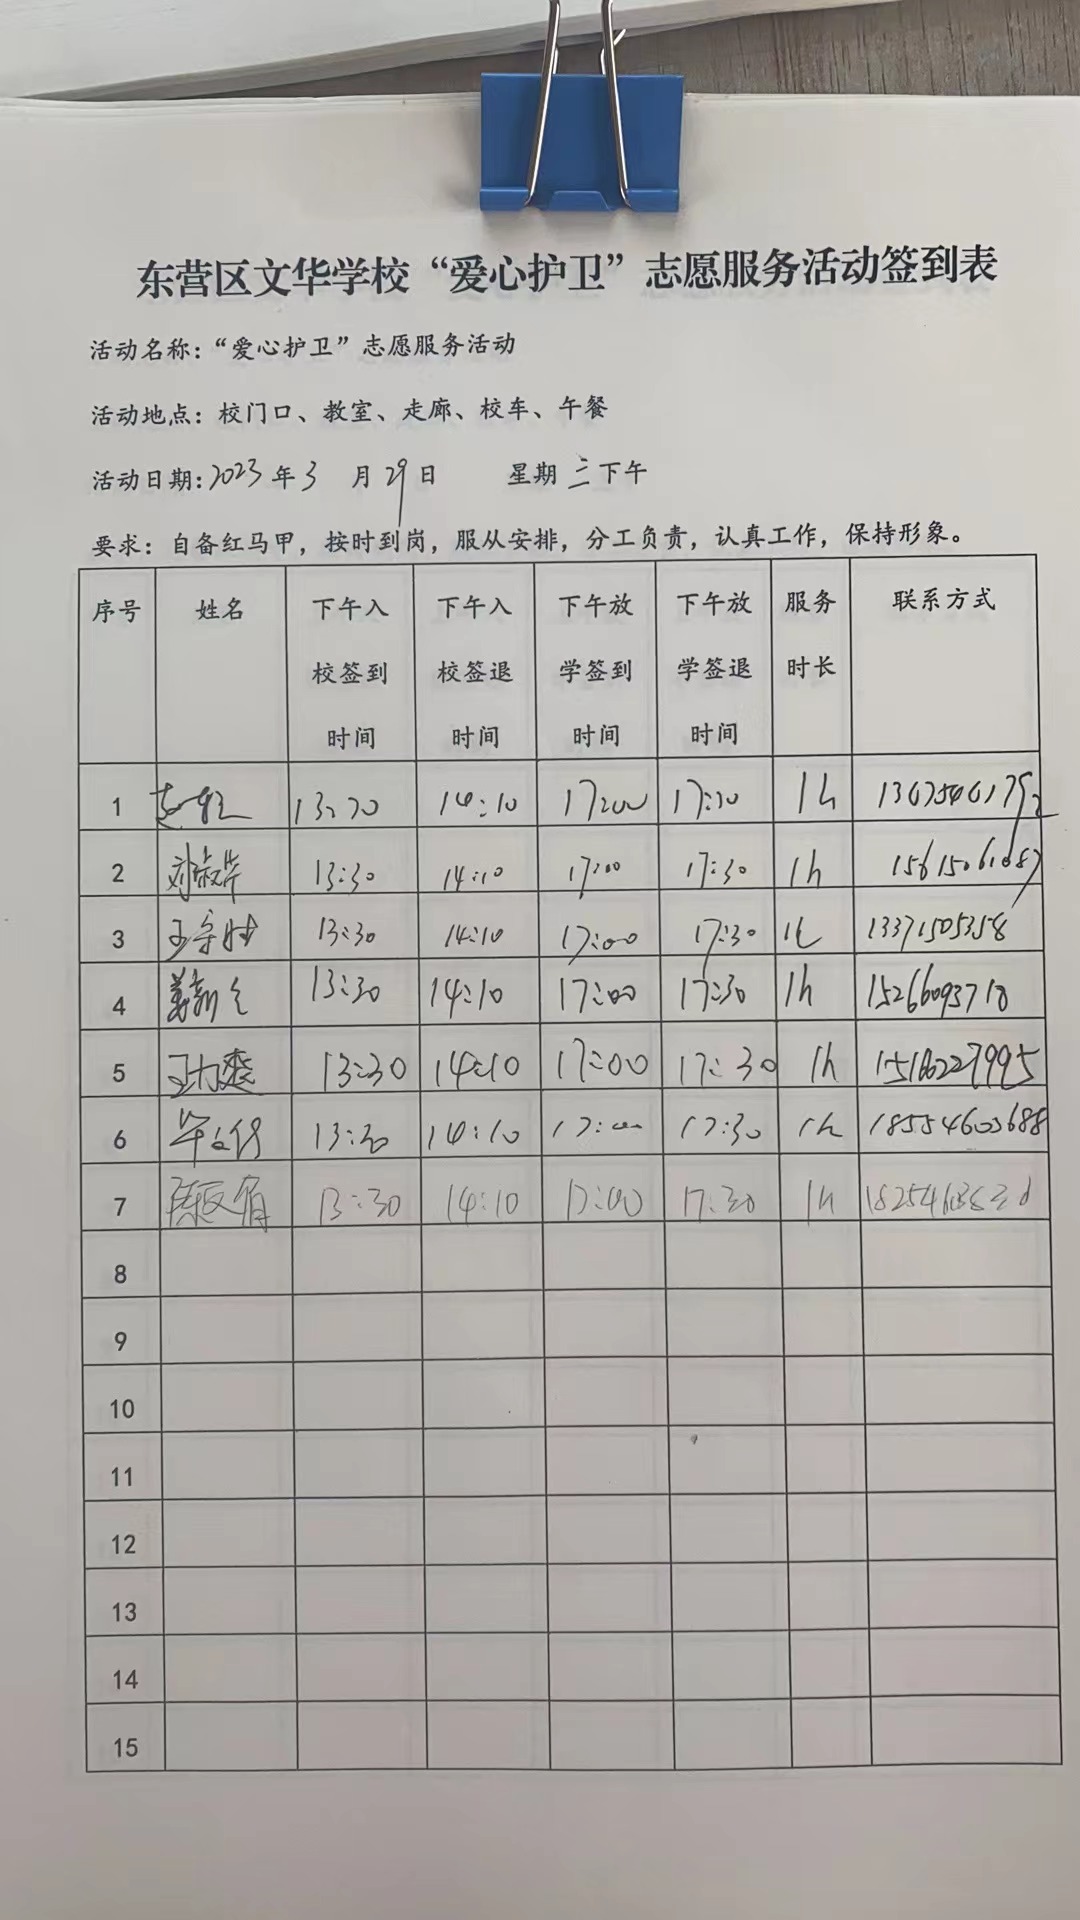 东营区文华学校“爱心护卫”志愿服务活动签到表
活动名称：“爱心护卫”志愿服务活动
活动地点：校门口、教室、走廊、校车、午餐
活动日期:2023年3月29日 星期三下午
要求：自备红马甲，按时到岗，服从安排，分工负责，认真工作，保持形象。
序号 姓名 下午入校签到时间 下午入校签退时间 下午放学签到时间 下午放学签退时间 服务时长 联系方式
1 13:30 14:10 17:00 17:30 1h
2 刘淑芹 13:30 14:10 17:00 17:30 1h
3 13:30 14:10 17:00 17:30 1h 13371505358
4 13:30 14:10 17:00 17:30 1h 15266093718
5 13:30 14:10 17:00 17:30 1h
6 13:30 14:10 17:00 17:30 1h 18554603688
7 13:30 14:10 17:00 17:30 1h
8
9
10
11
12
13
14
15